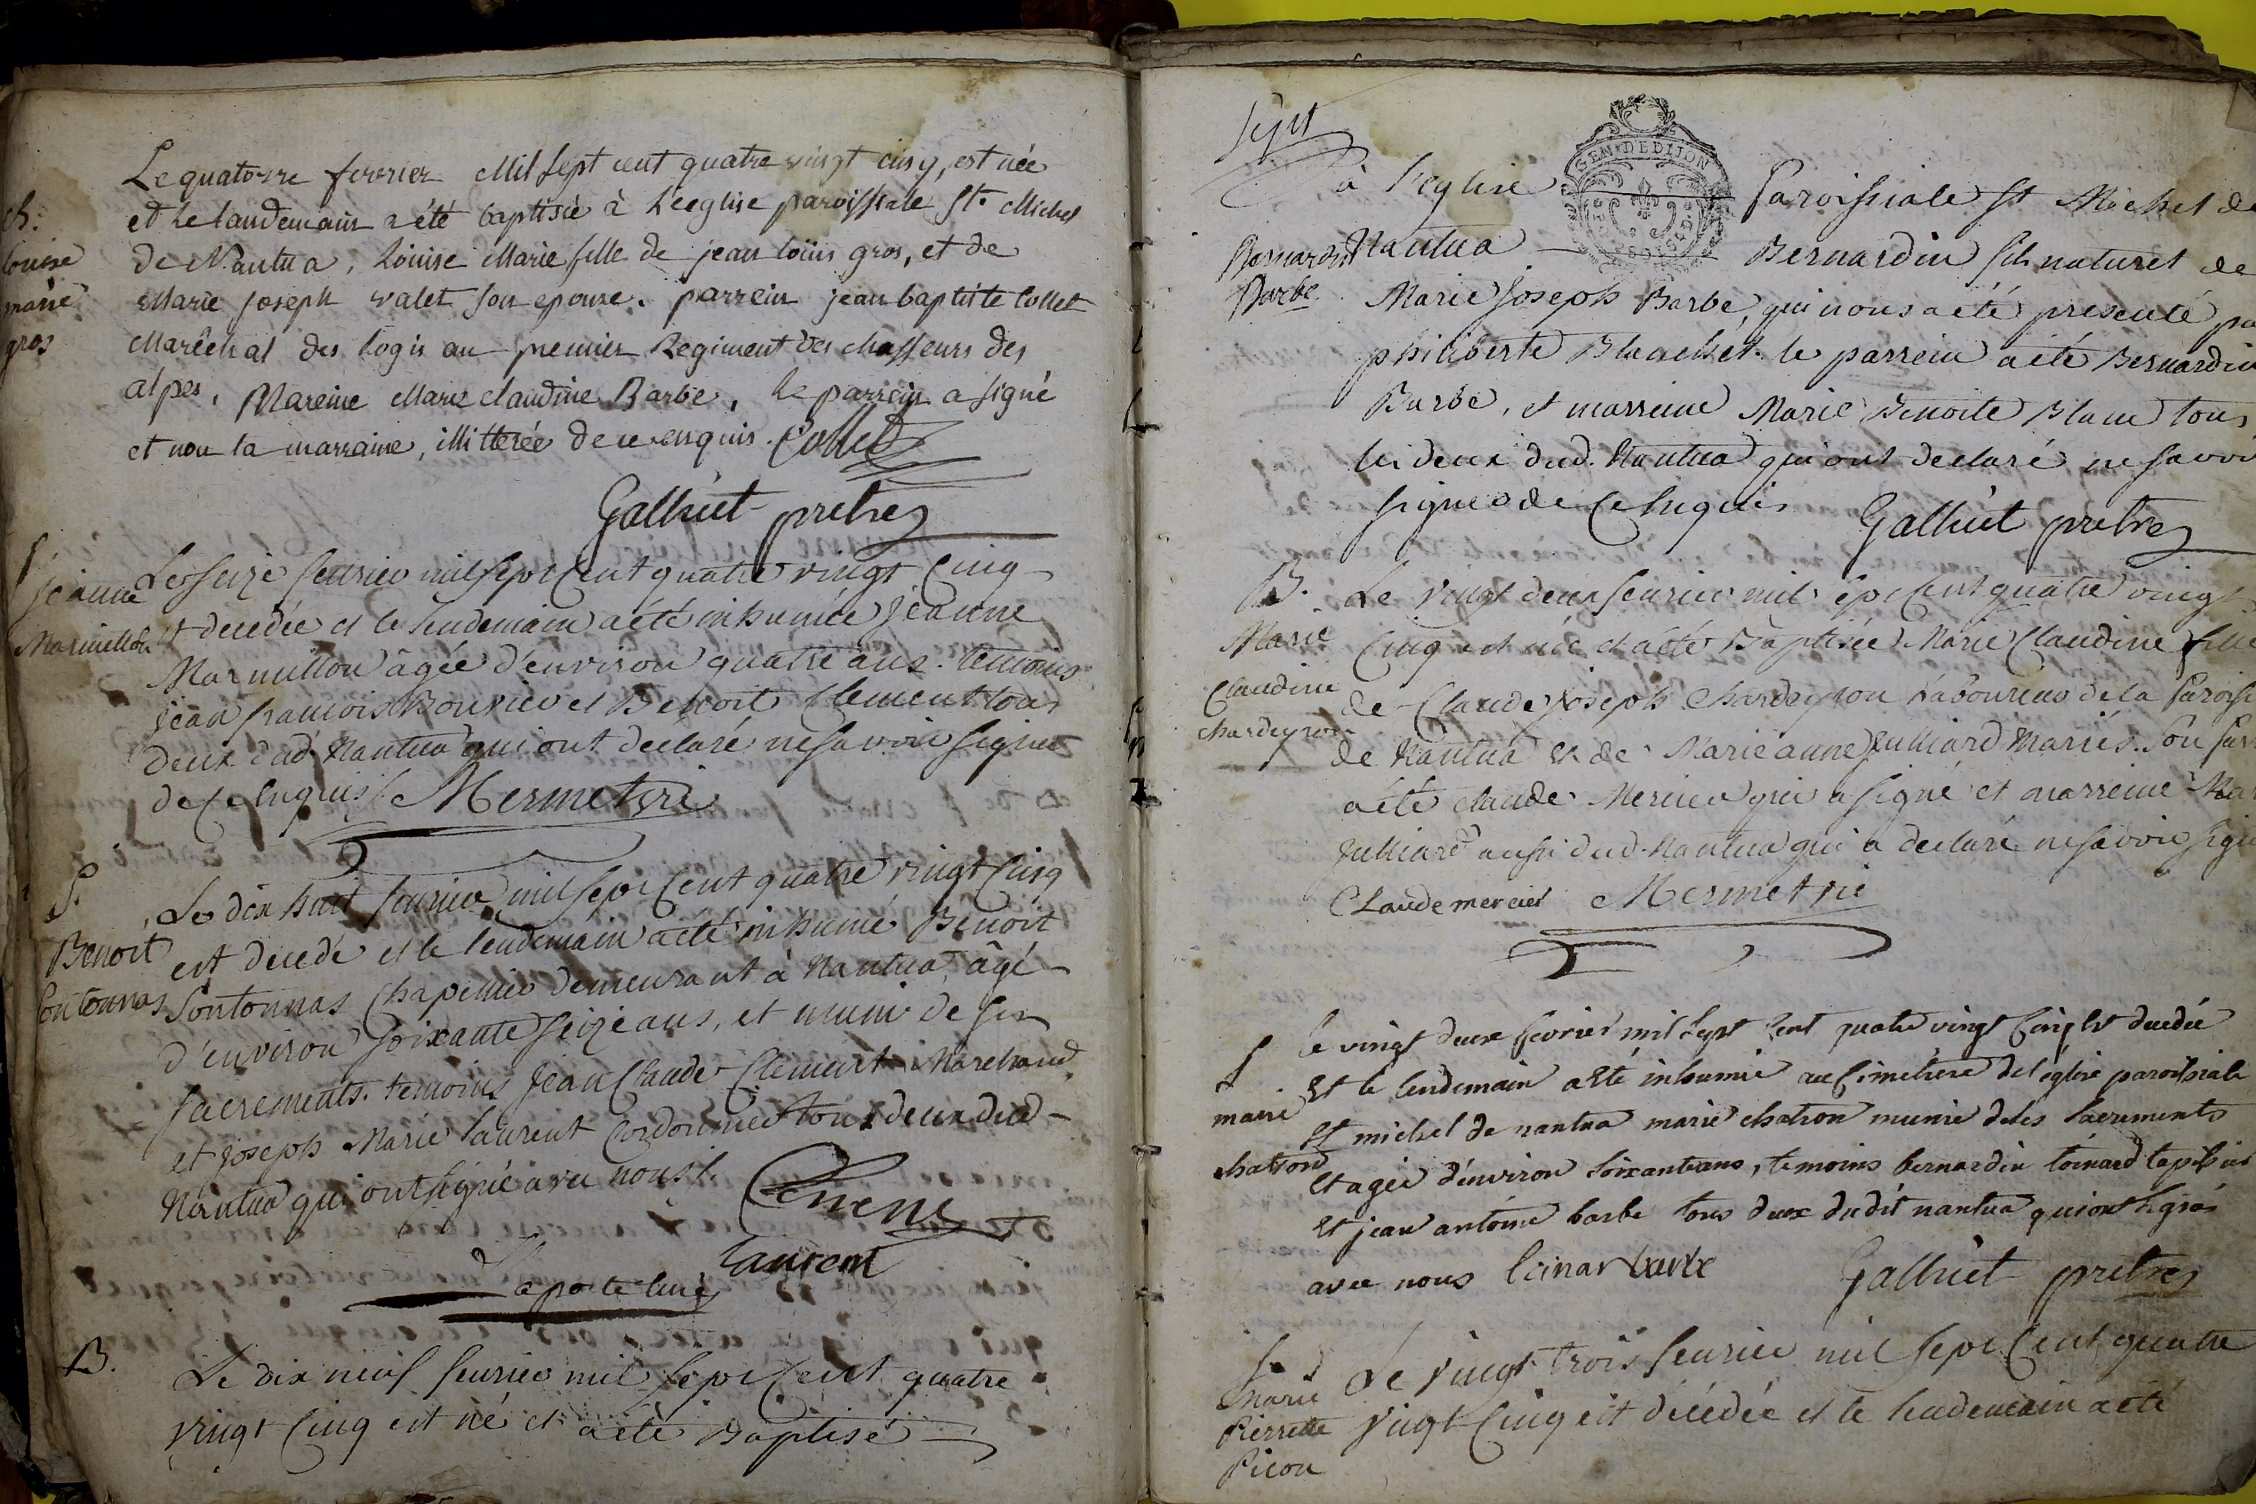 ch.
Louise
marie
gros
Le quatorze fevrier Mil sept cent quatre vingt cinq, est née
et le landemain a été baptisée à l'eeglise paroissiale St. Michel
de Nantua, Loüise Marie fille de jean loüis gros, et de
Marie joseph valet son epouse. parrein jean baptiste Collet
Marêchal des logis au premier Regiment des chasseurs des
alpes, Mareine Marie claudine Barbe, le parrein a signé
et non la marraine, illitterée de ce enquis. Collet
Galliiet pretre
S
jeanne
Marmillon
Le seize feurier mil sept Cent quatre vingt Cinq
est decedée et le lendemain a été inhumée Jeanne
Marmillon âgée d'environ quatre ans. temoins
jean francois Bouvier et Benoit Clement tous
deux dud. Nantua qui ont declaré ne savoir signer
de ce enquis /. Mermet vic
S.
Benoit
Sontonnas
Le dix huit feurier mil sept Cent quatre vingt Cinq
est decedé et le lendemain a été inhumé Benoit
Sontonnas Chapellier demeurant à Nantua, âgé
d'environ soixante seize ans, et muni de ses
sacrements. temoins Jean Claude Clement Marchand
et Joseph Marie laurent Cordonnier tous deux dud
Nantua qui ont signé avec nous /.
Clement
laurent
Laporte curé
B.
Le dix neuf feurier mil sept Cent quatre
vingt Cinq est né et a été Baptisé
sept
GEN. DE DIJON
à l'eglise Paroissiale St Michel de
Bernardin
Barbe
Nantua Bernardin fils naturel de
Marie Joseph Barbe, qui nous a été presenté pa
philiberte Blanchet. le parrein a été Bernardin
Barbe, et marreine Marie Benoite Blanc tous
les deux dud. Nantua qui ont declaré ne savoi
signer de ce enquis Galliiet pretre
B.
Marie
Claudine
chardeyron
Le vingt deux feurier mil sept Cent quatre vingt
Cinq est née et a été Baptisée Marie Claudine fille
de Claude Joseph Chardeyron Laboureur de la Paroisse
de Nantua et de Marie anne Julliard Mariés. Son parr
a été claude Mercier qui a signé et marreine Mar
Julliard aussi dud. Nantua qui a declaré ne savoir sign
Claude mercier Mermet vic
S.
marie
chatron
le vingt deux fevrier mil sept cent quatre vingt Cinq Est decedée
Et le lendemain a Eté inhumée au Cimetiere de l'église paroissiale
st michel de nantua marie chatron munie de ses sacrements
Et agée d'environ soixante ans, temoins bernardin toinard tapissier
Et jean antoine barbe tous deux dudit nantua qui ont signés
avec nous barbe Galliiet pretre
S.
Marie
Pierrette
Picon
Le vingt trois feurier mil sept Cent quatre
vingt Cinq est décédée et le lendemain a été